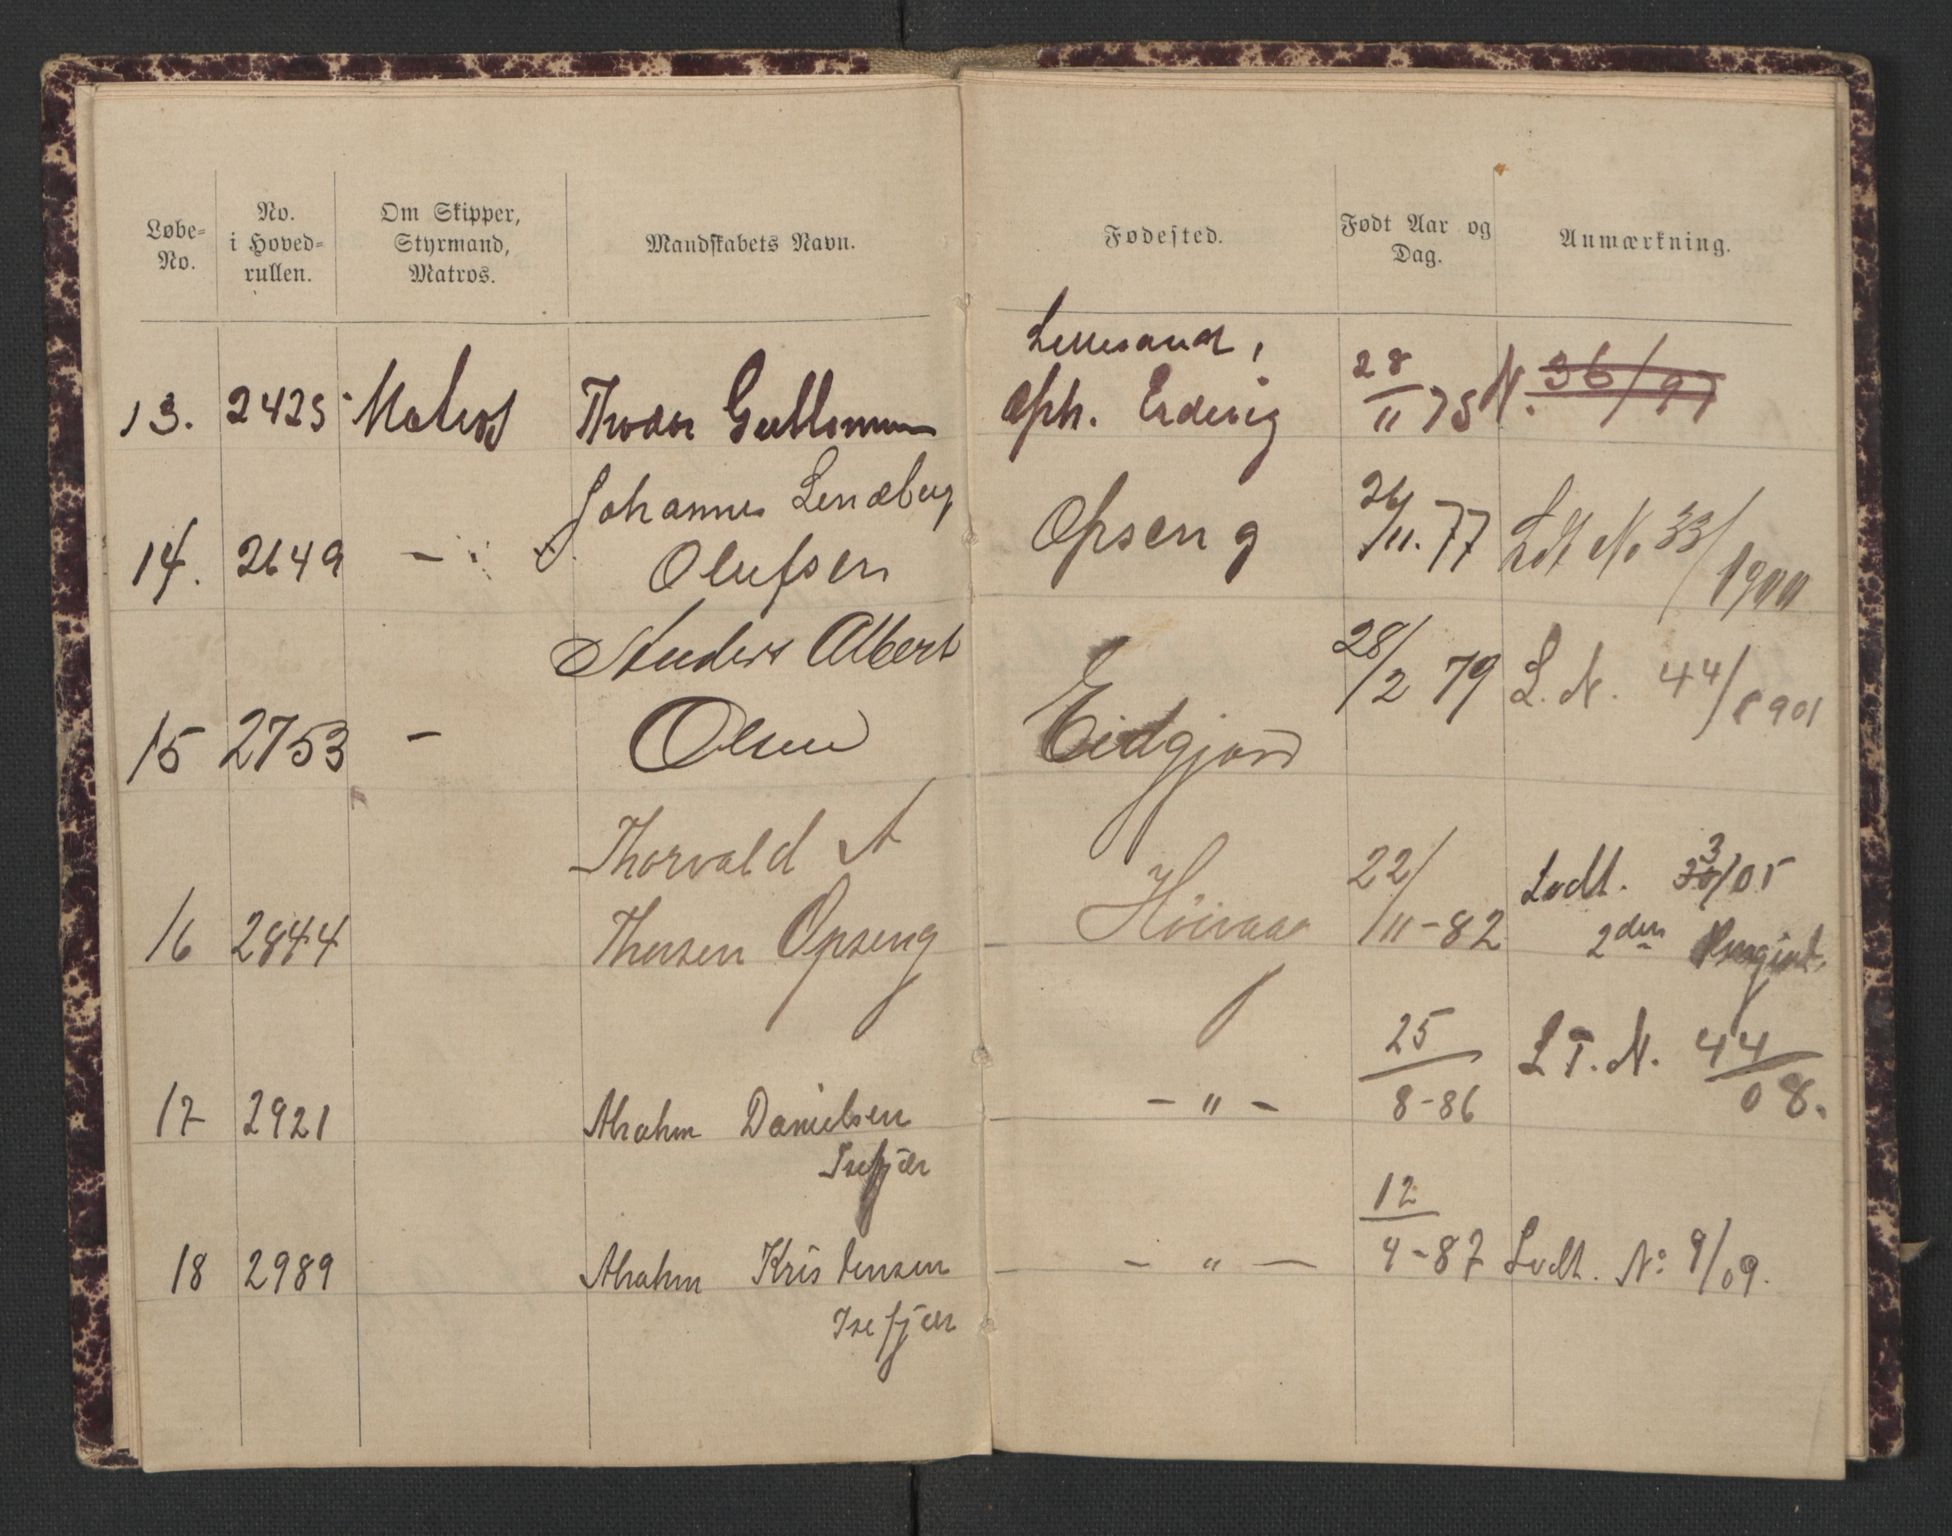 Løbe-No. | No. i Hoved-rullen. | Om Skipper, Styrmand, Matros. | Mandskabets Navn. | Fødested. | Født Aar og Dag. | Anmærkning.
Lillesand,
13. 2425 Matros Thodor Oph. 28/11 75 N. 36/97
Johannes Lendberg
14. 2649 - Olufsen Opseng 26/11. 77 Ldt No 33/1900
Anders Albert
15 2753 - Olsen Eidjord 28/2 79 L. N. 44/1901
Thorvald A
16 2844 Thorsen Opseng Høivaag 22/11-82 Lodt. 3/05
2den
17 2921 Abrahm Danielsen - " - 25/8-86 L T. N. 44/08.
Isefjær
18 2989 Abrahm Kristensen - " - 12/4-87 Lodt. N: 9/09.
Isefjær